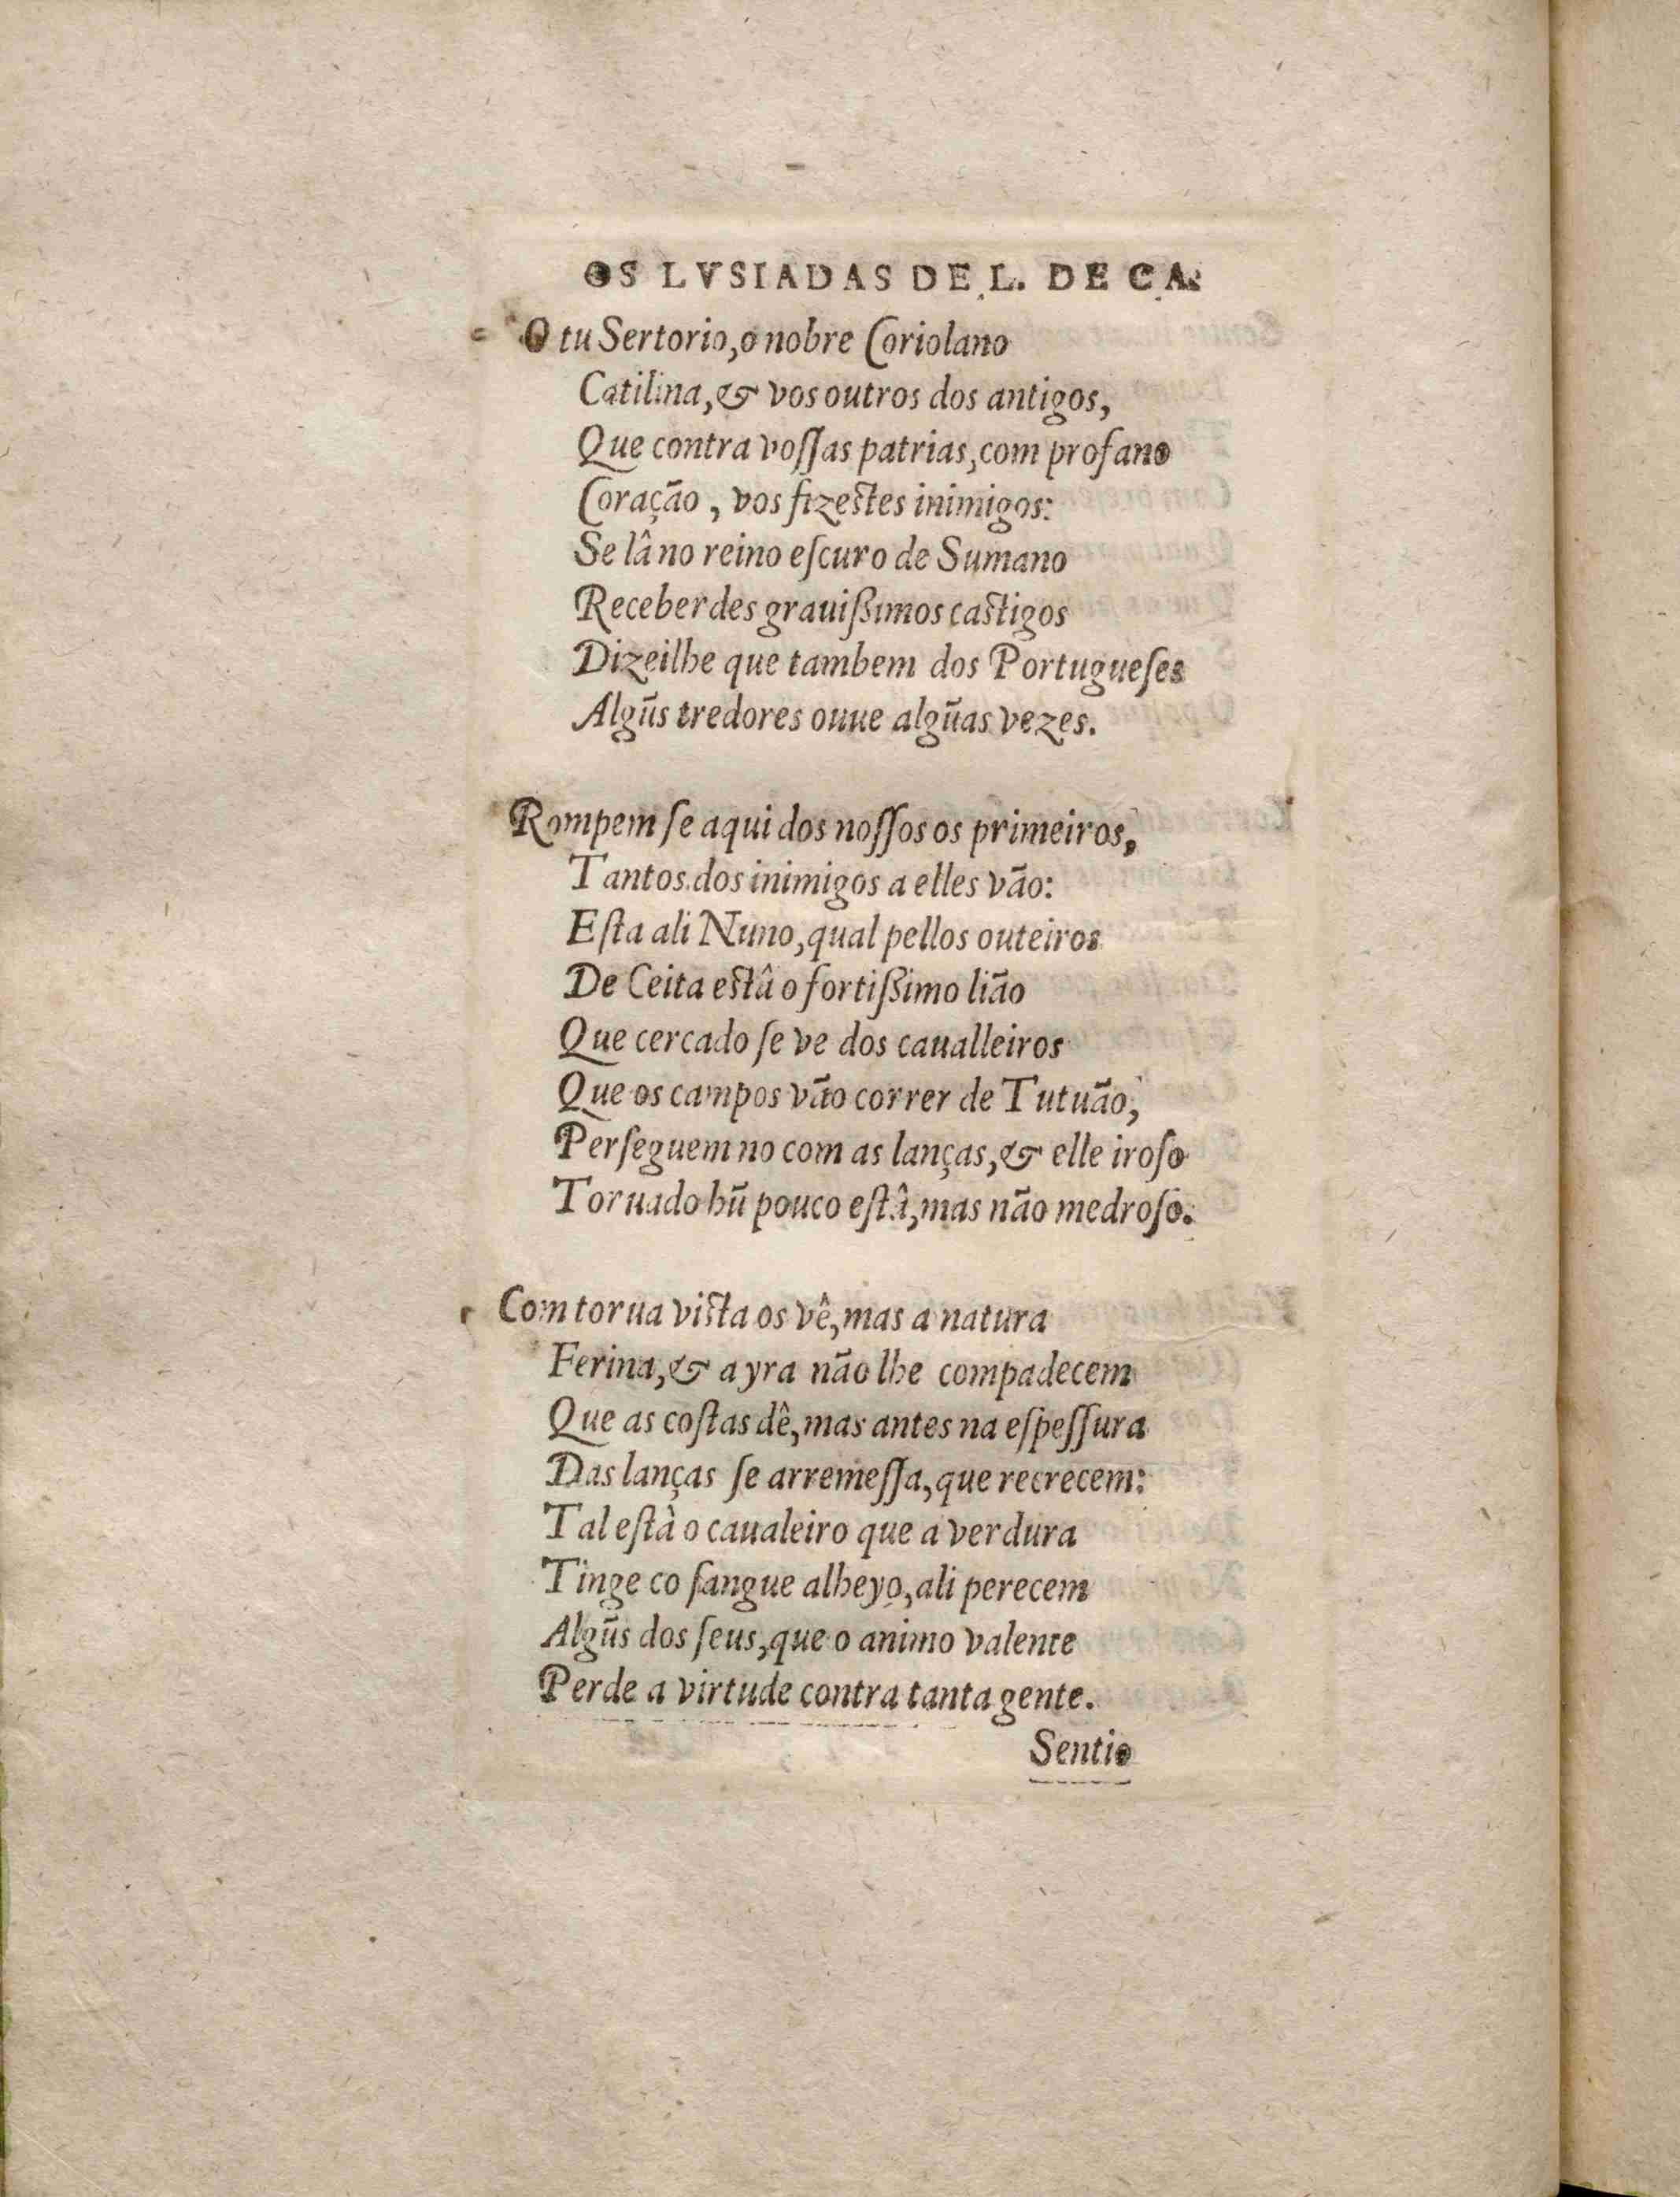 OS LVSIADAS DE L. DE CA.
O tu Sertorio, o nobre Coriolano
Catilina, & vos outros dos antigos,
Que contra voſſas patrias, com profano
Coração, vos fizeſtes inimigos:
Se lâ no reino eſcuro de Sumano
Receberdes grauißimos caſtigos
Dizeilhe que tambem dos Portugueſes
Algũs tredores ouue algũas vezes.
Rompem ſe aqui dos noſſos os primeiros,
Tantos dos inimigos a elles vão:
Eſta ali Nuno, qual pellos outeiros
De Ceita eſtâ o fortißimo lião
Que cercado ſe ve dos caualleiros
Que os campos vão correr de Tutuão,
Perſeguem no com as lanças, & elle iroſo
Toruado hũ pouco eſtâ, mas não medroſo.
Com torua viſta os vê, mas a natura
Ferina, & a yra não lhe compadecem
Que as coſtas dê, mas antes na eſpeſſura
Das lanças ſe arremeſſa, que recrecem:
Tal eſtâ o caualeiro que a verdura
Tinge co ſangue alheyo, ali perecem
Algũs dos ſeus, que o animo valente
Perde a virtude contra tanta gente.
Sentio